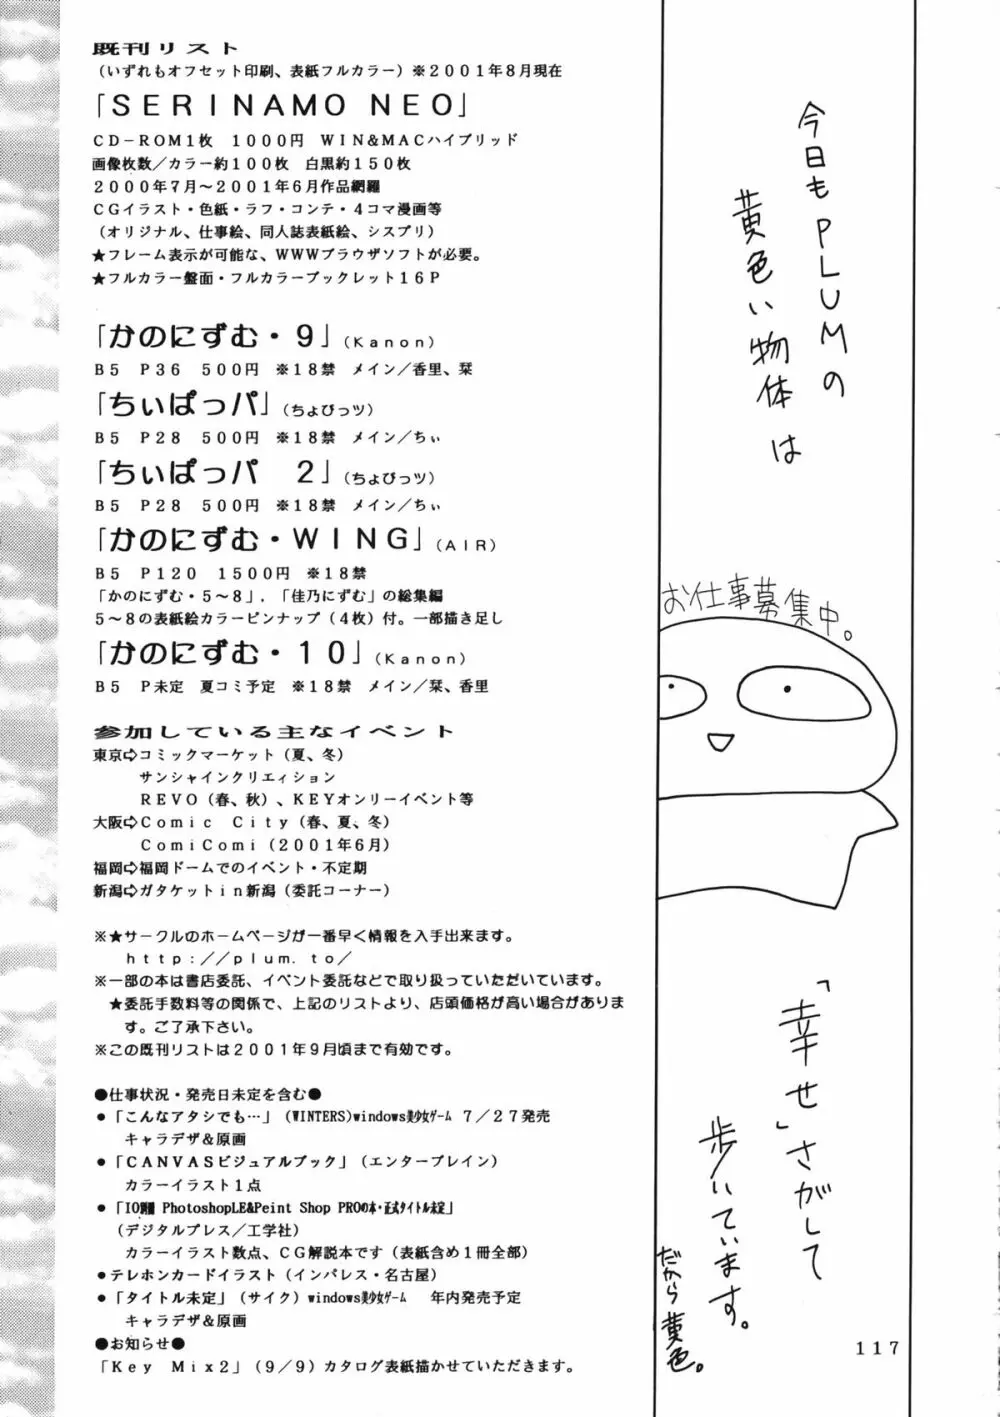 既刊リスト
（いずれもオフセット印刷、表紙フルカラー）※２００１年８月現在
「ＳＥＲＩＮＡＭＯ ＮＥＯ」
ＣＤ－ＲＯＭ１枚　１０００円　ＷＩＮ＆ＭＡＣハイブリッド
画像枚数／カラー約１００枚　白黒約１５０枚
２０００年７月～２００１年６月作品網羅
ＣＧイラスト・色紙・ラフ・コンテ・４コマ漫画等
（オリジナル、仕事絵、同人誌表紙絵、シスプリ）
★フレーム表示が可能な、ＷＷＷブラウザソフトが必要。
★フルカラー盤面・フルカラーブックレット１６Ｐ
「かのにずむ・９」（Ｋａｎｏｎ）
Ｂ５　Ｐ３６　５００円　※１８禁　メイン／香里、栞
「ちぃぱっパ」（ちょびっツ）
Ｂ５　Ｐ２８　５００円　※１８禁　メイン／ちぃ
「ちぃぱっパ　２」（ちょびっツ）
Ｂ５　Ｐ２８　５００円　※１８禁　メイン／ちぃ
「かのにずむ・ＷＩＮＧ」（ＡＩＲ）
Ｂ５　Ｐ１２０　１５００円　※１８禁
「かのにずむ・５～８」，「佳乃にずむ」の総集編
５～８の表紙絵カラーピンナップ（４枚）付。一部描き足し
「かのにずむ・１０」（Ｋａｎｏｎ）
Ｂ５　Ｐ未定　夏コミ予定　※１８禁　メイン／栞、香里
参加している主なイベント
東京⇨コミックマーケット（夏、冬）
サンシャインクリエィション
ＲＥＶＯ（春、秋）、ＫＥＹオンリーイベント等
大阪⇨Ｃｏｍｉｃ　Ｃｉｔｙ（春、夏、冬）
ＣｏｍｉＣｏｍｉ（２００１年６月）
福岡⇨福岡ドームでのイベント・不定期
新潟⇨ガタケットｉｎ新潟（委託コーナー）
※★サークルのホームページが一番早く情報を入手出来ます。
ｈｔｔｐ：／／ｐｌｕｍ．ｔｏ／
※一部の本は書店委託、イベント委託などで取り扱っていただいています。
★委託手数料等の関係で、上記のリストより、店頭価格が高い場合がありま
す。ご了承下さい。
※この既刊リストは２００１年９月頃まで有効です。
●仕事状況・発売日未定を含む●
●「こんなアタシでも…」（WINTERS）windows美少女ｹﾞｰﾑ ７／２７発売
キャラデザ＆原画
●「ＣＡＮＶＡＳビジュアルブック」（エンターブレイン）
カラーイラスト１点
（デジタルプレス／工学社）
カラーイラスト数点、ＣＧ解説本です（表紙含め１冊全部）
●テレホンカードイラスト（インパレス・名古屋）
●「タイトル未定」（サイク）windows美少女ｹﾞｰﾑ　年内発売予定
キャラデザ＆原画
●お知らせ●
「Ｋｅｙ　Ｍｉｘ２」（９／９）カタログ表紙描かせていただきます。
今日もPLUMの
黄色い物体は
お仕事募集中。
「幸せ」さがして
歩いています。
だから黄色。
１１７